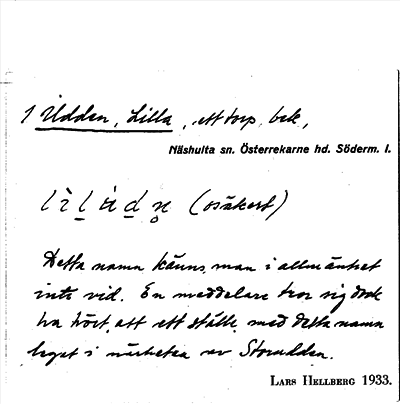 1 Udden, Lilla, ett torp, bek,
Näshulta sn. Österrekarne hd. Söderm. l.
(osäkert)
Detta namn känns man i allmänhet
inte vid. En meddelare tror sig dock
ha hört, att ett ställe med detta namn
legat i närheten av Storudden.
LARS HELLBERG 1933.